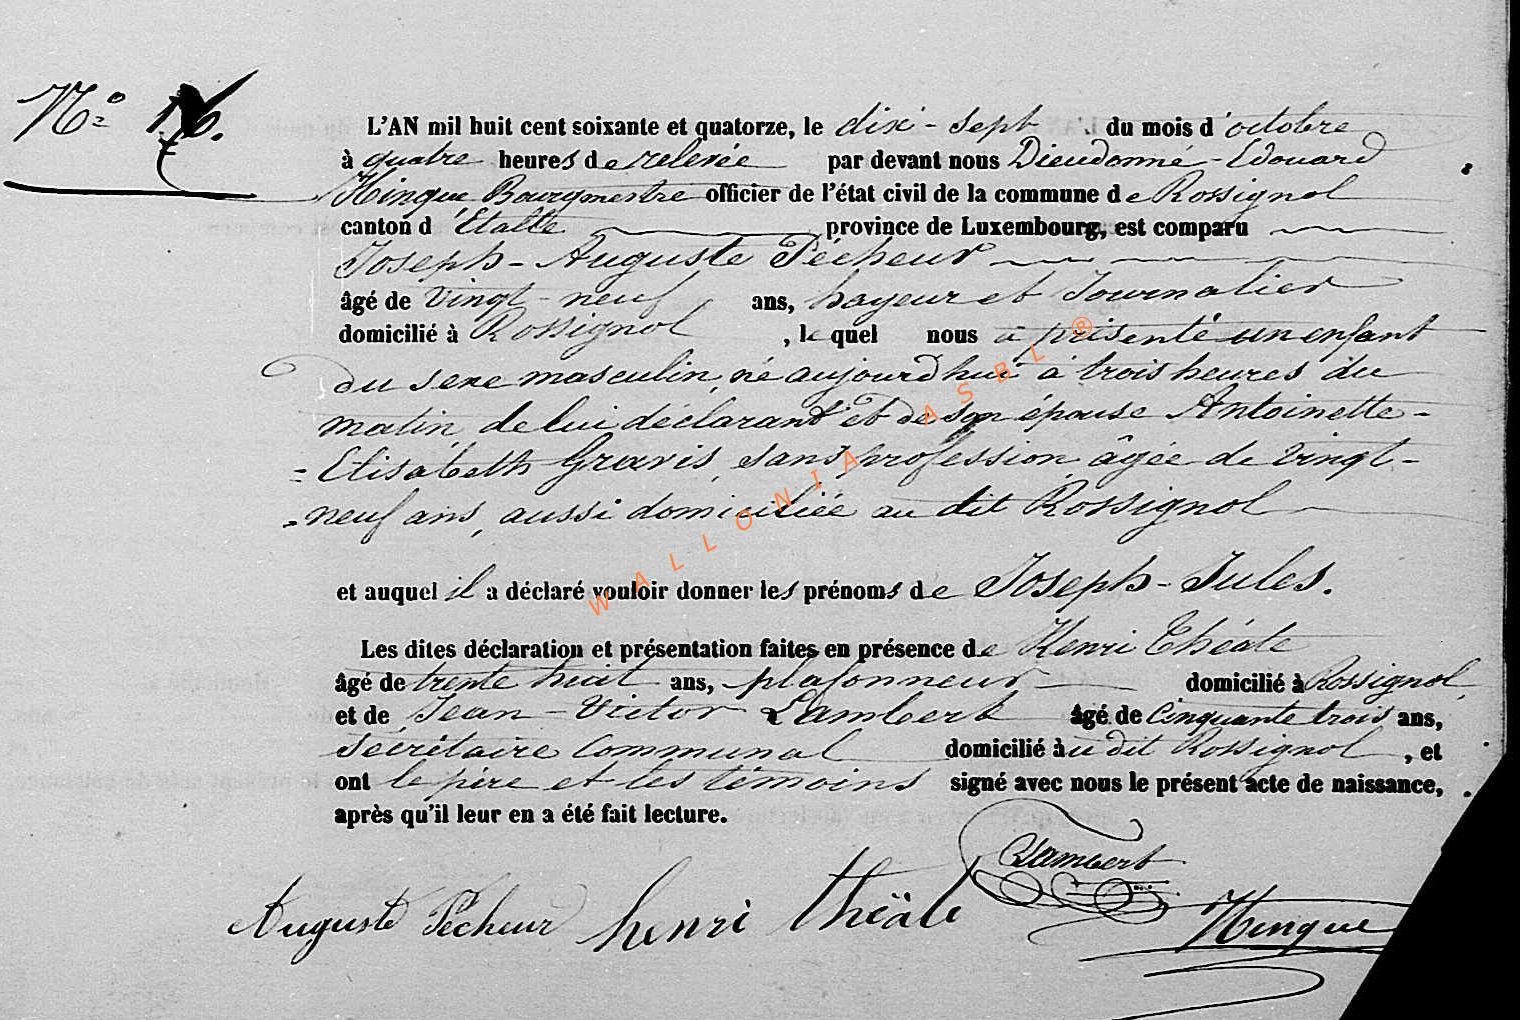 N.° 16.
L'AN mil huit cent soixante et quatorze, le dix-sept du mois d'octobre
à quatre heures de relevée par devant nous Dieudonné-Edouard
Hinque Bourgmestre officier de l'état civil de la commune de Rossignol
canton d'Etalle province de Luxembourg, est comparu
Joseph-Auguste Pécheur
âgé de vingt-neuf ans, hayeur et Journalier
domicilié à Rossignol, lequel nous a présenté un enfant
du sexe masculin, né aujourd'hui à trois heures du
matin de lui déclarant et de son épouse Antoinette-
=Elisabeth Gravis, sans profession, âgée de vingt-
=neuf ans, aussi domiciliée au dit Rossignol
et auquel il a déclaré vouloir donner les prénoms de Joseph-Jules.
Les dites déclaration et présentation faites en présence de Henri Théate
âgé de trente huit ans, plafonneur domicilié à Rossignol,
et de Jean-Victor Lambert âgé de cinquante trois ans,
sécrétaire communal domicilié au dit Rossignol, et
ont le père et les témoins signé avec nous le présent acte de naissance,
après qu'il leur en a été fait lecture.
Lambert
Auguste Pécheur henri thëate Hinque
WALLONIA ASBL ®